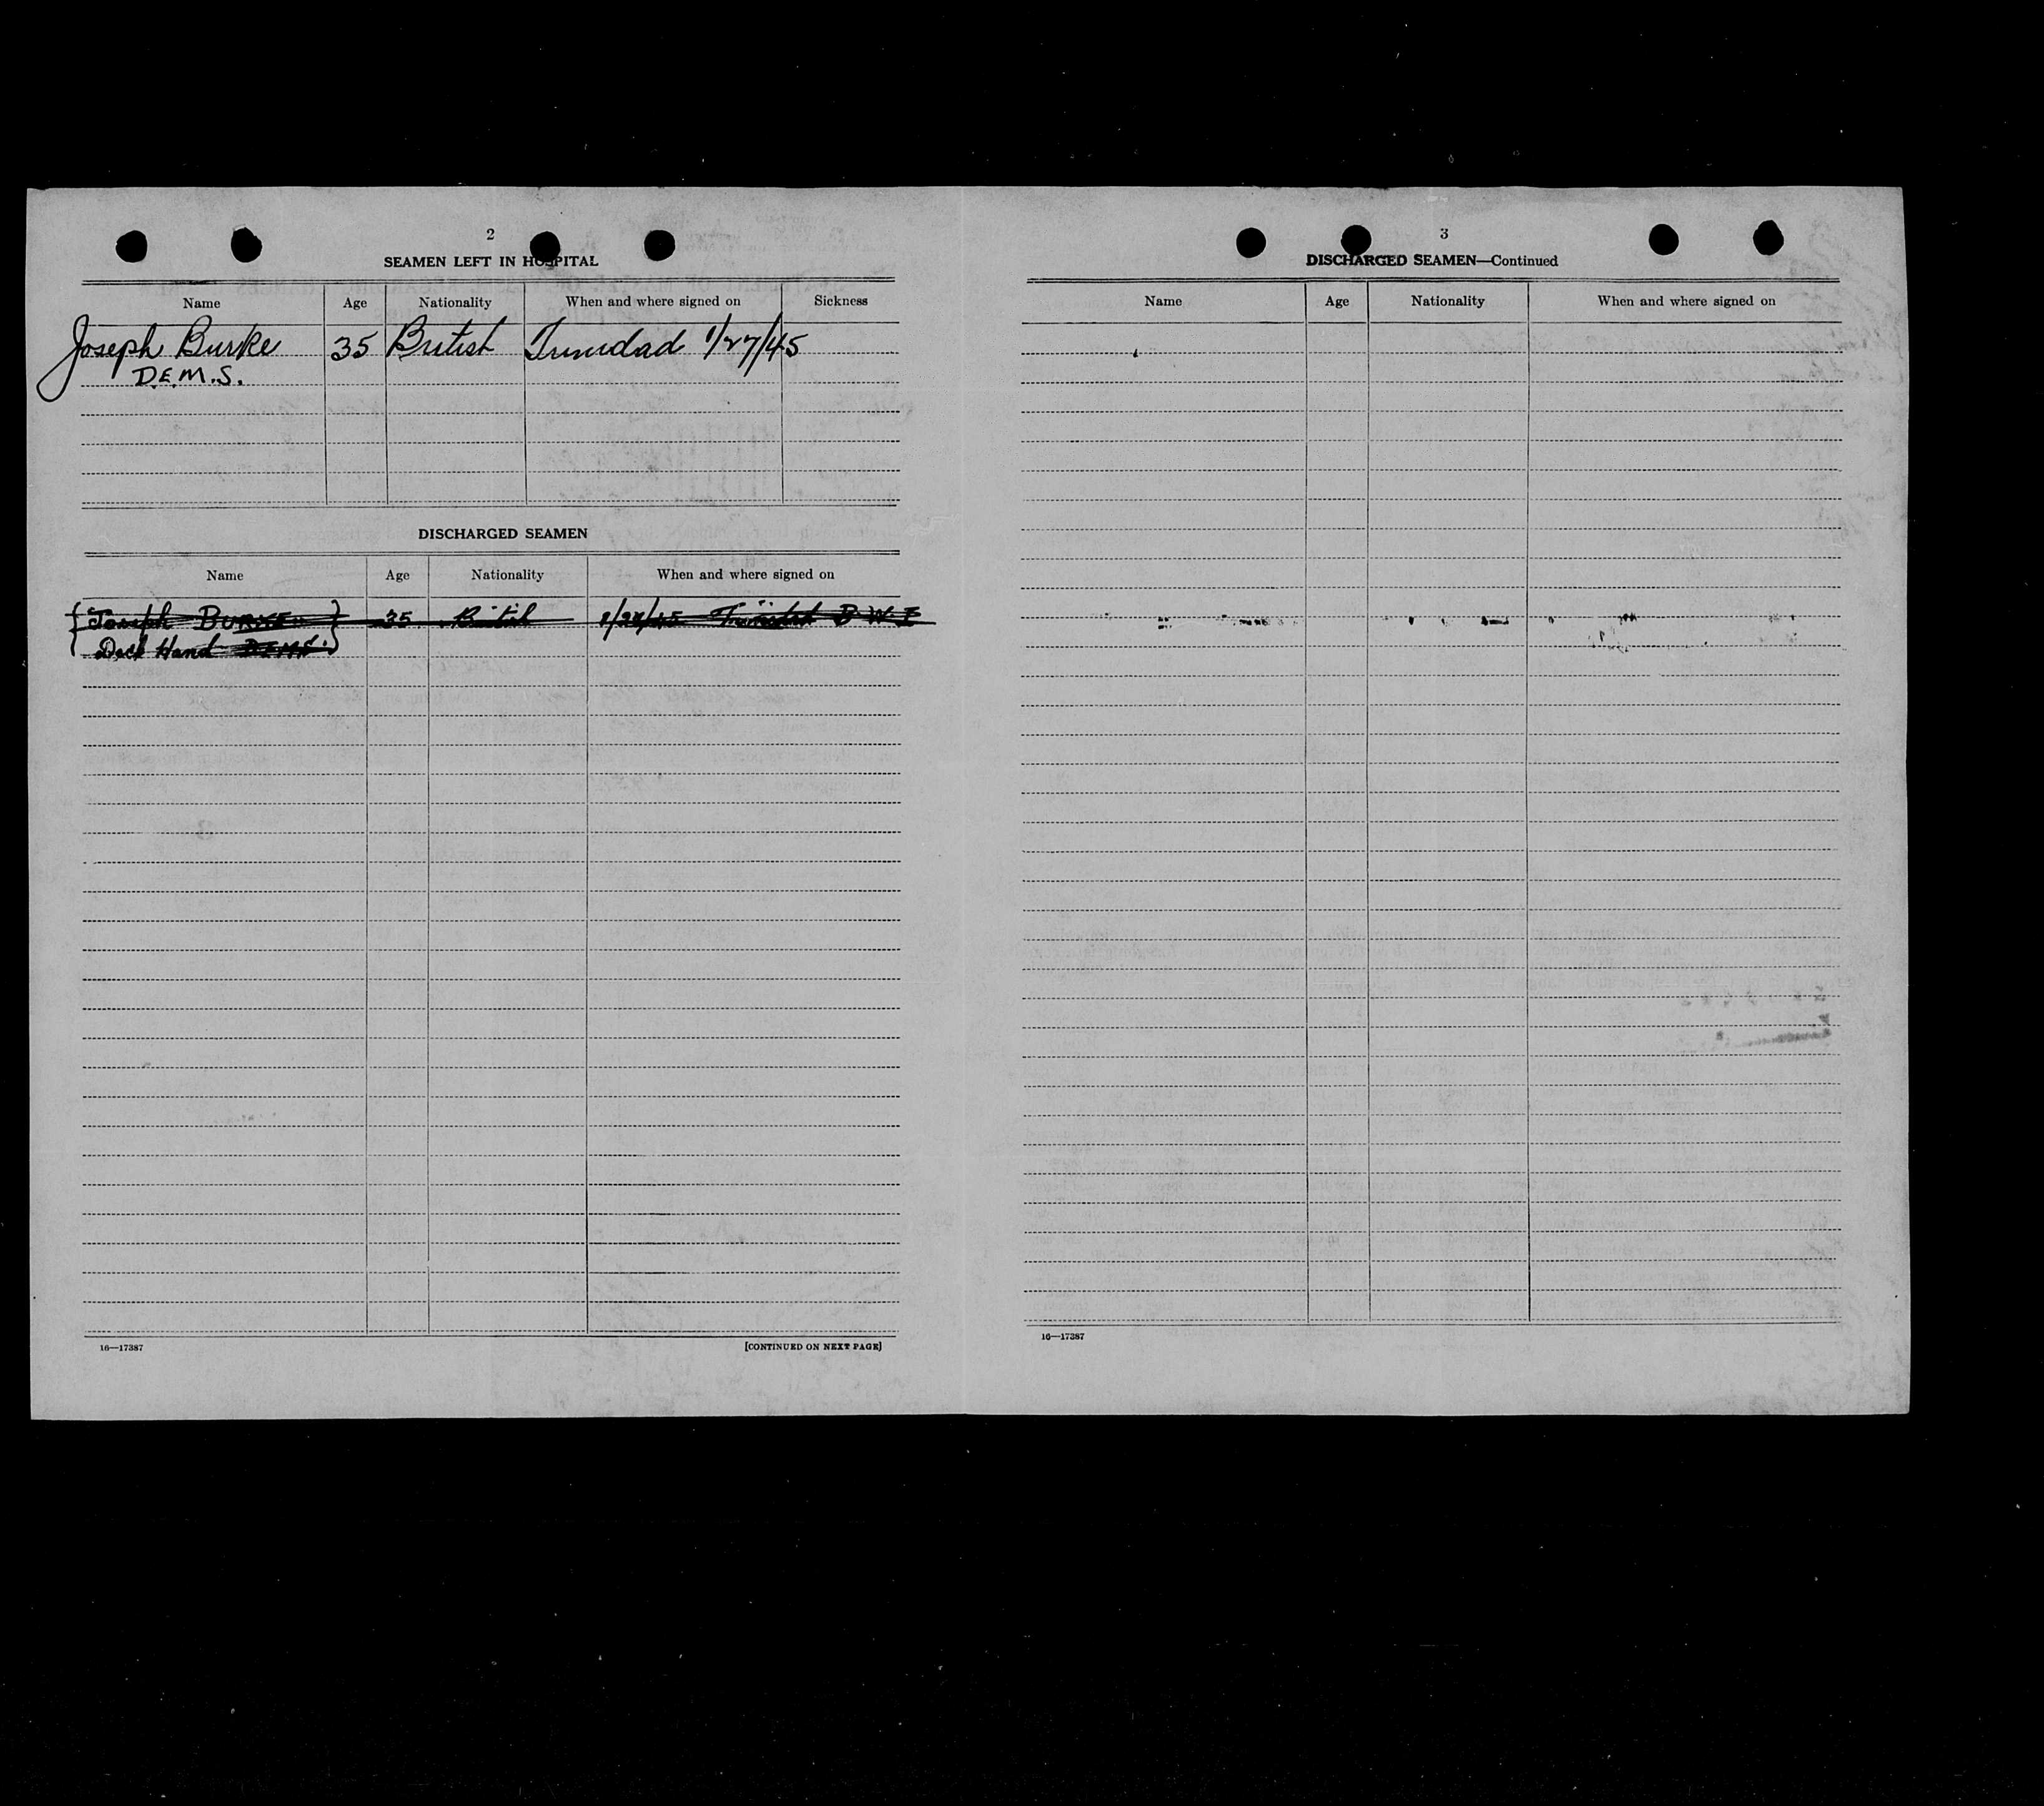 2
SEAMEN LEFT IN HOSPITAL
Name Age Nationality When and where signed on Sickness
Joseph Burke 35 British Trinidad 1/27/45
D.E.M.S.
DISCHARGED SEAMEN
Name Age Nationality When and where signed on
Joseph BURKE 35 British 1/27/45 Trinidad B.W.I
Deck Hand DEMS.
16—17387
[CONTINUED ON NEXT PAGE]
3
DISCHARGED SEAMEN—Continued
Name Age Nationality When and where signed on
16—17387